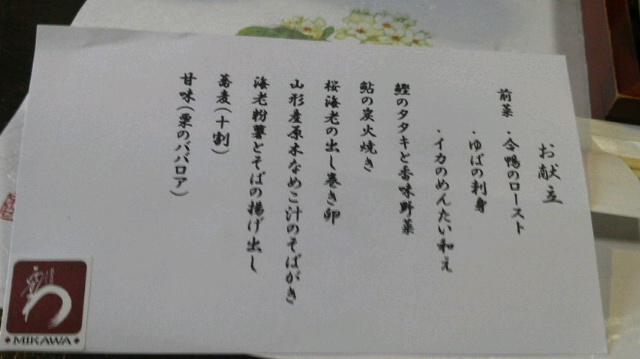 お献立
前菜・合鴨のロースト
・ゆばの刺身
・イカのめんたい和え
鰹のタタキと香味野菜
鮎の炭火焼き
桜海老の出し巻き卵
山形産原木なめこ汁のそばがき
海老粉薯とそばの揚げ出し
蕎麦(十割)
甘味(栗のババロア)
MIKAWA